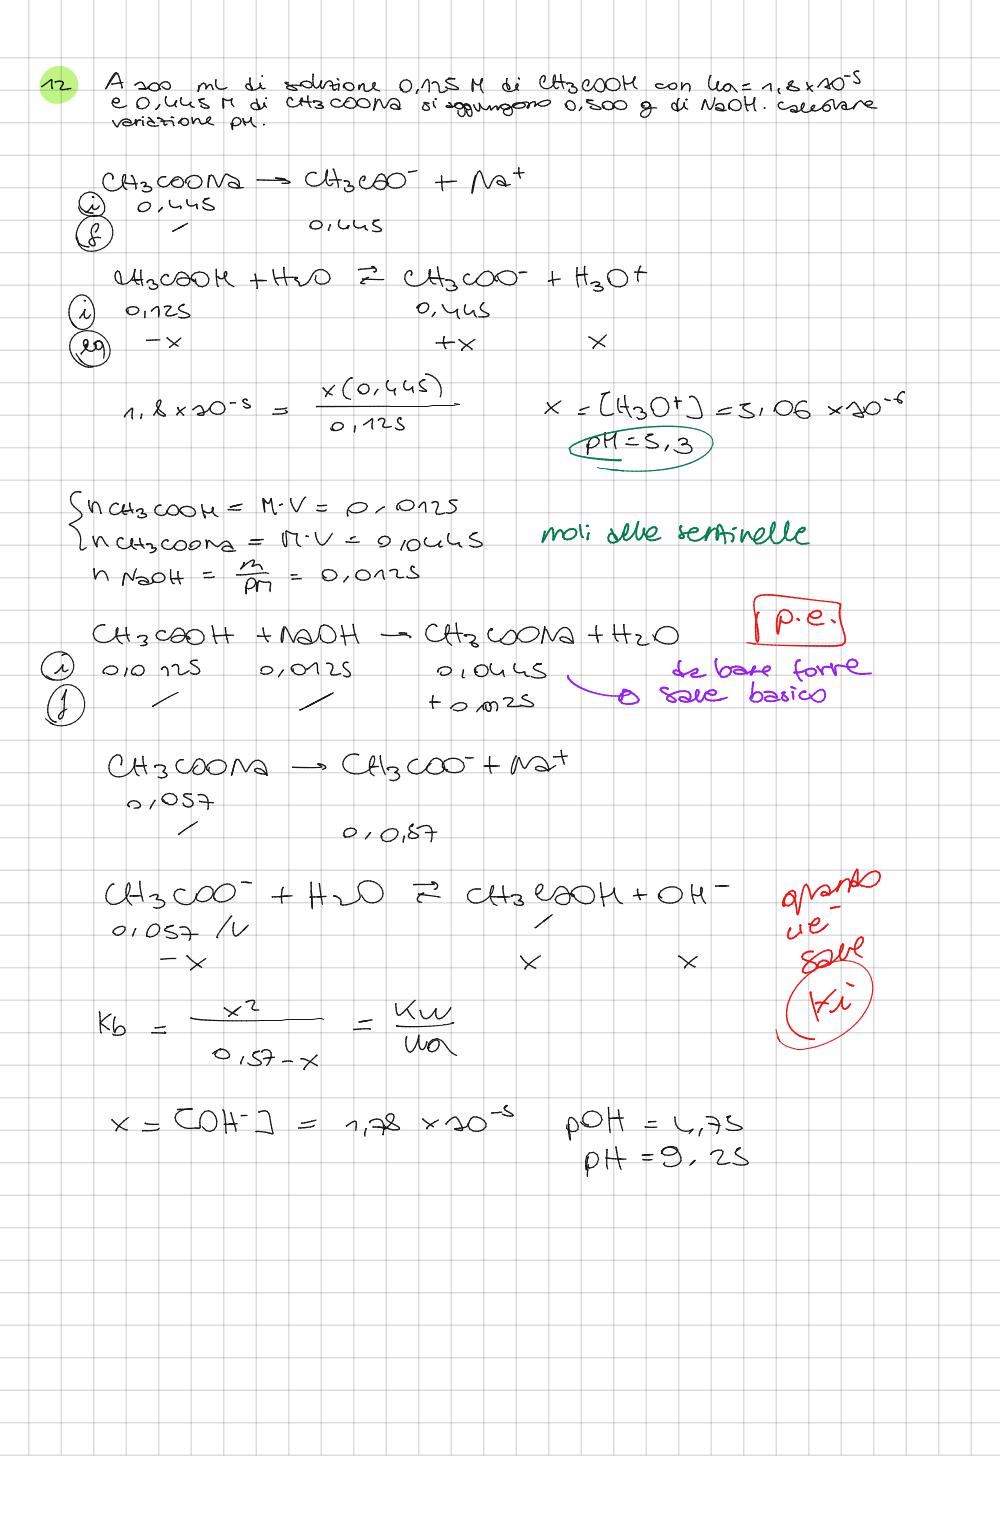 12 A 100 mL di soluzione 0,125 M di CH3COOH con Ka = 1,8 × 10⁻⁵
e 0,445 M di CH3COONa si aggiungono 0,500 g di NaOH. calcolare
variazione pH.
CH3COONa → CH3COO⁻ + Na⁺
i 0,445
f / 0,445
CH3COOH + H2O ⇄ CH3COO⁻ + H3O⁺
i 0,125 0,445
eq -x +x x
1,8 × 10⁻⁵ = x(0,445) / 0,125 x = [H3O⁺] = 5,06 × 10⁻⁶
pH = 5,3
n CH3COOH = M·V = 0,0125
n CH3COONa = M·V = 0,0445 moli alle sentinelle
n NaOH = m/PM = 0,0125
p.e.
CH3COOH + NaOH → CH3COONa + H2O
i 0,0125 0,0125 0,0445 da base forte
f / / +0,0125 sale basico
CH3COONa → CH3COO⁻ + Na⁺
0,057
/ 0,057
CH3COO⁻ + H2O ⇄ CH3COOH + OH⁻ quando
0,057/V / c'è
-x x x sale
Ki
Kb = x² / 0,57-x = Kw/Ka
x = [OH⁻] = 1,78 × 10⁻⁵ pOH = 4,75
pH = 9,25